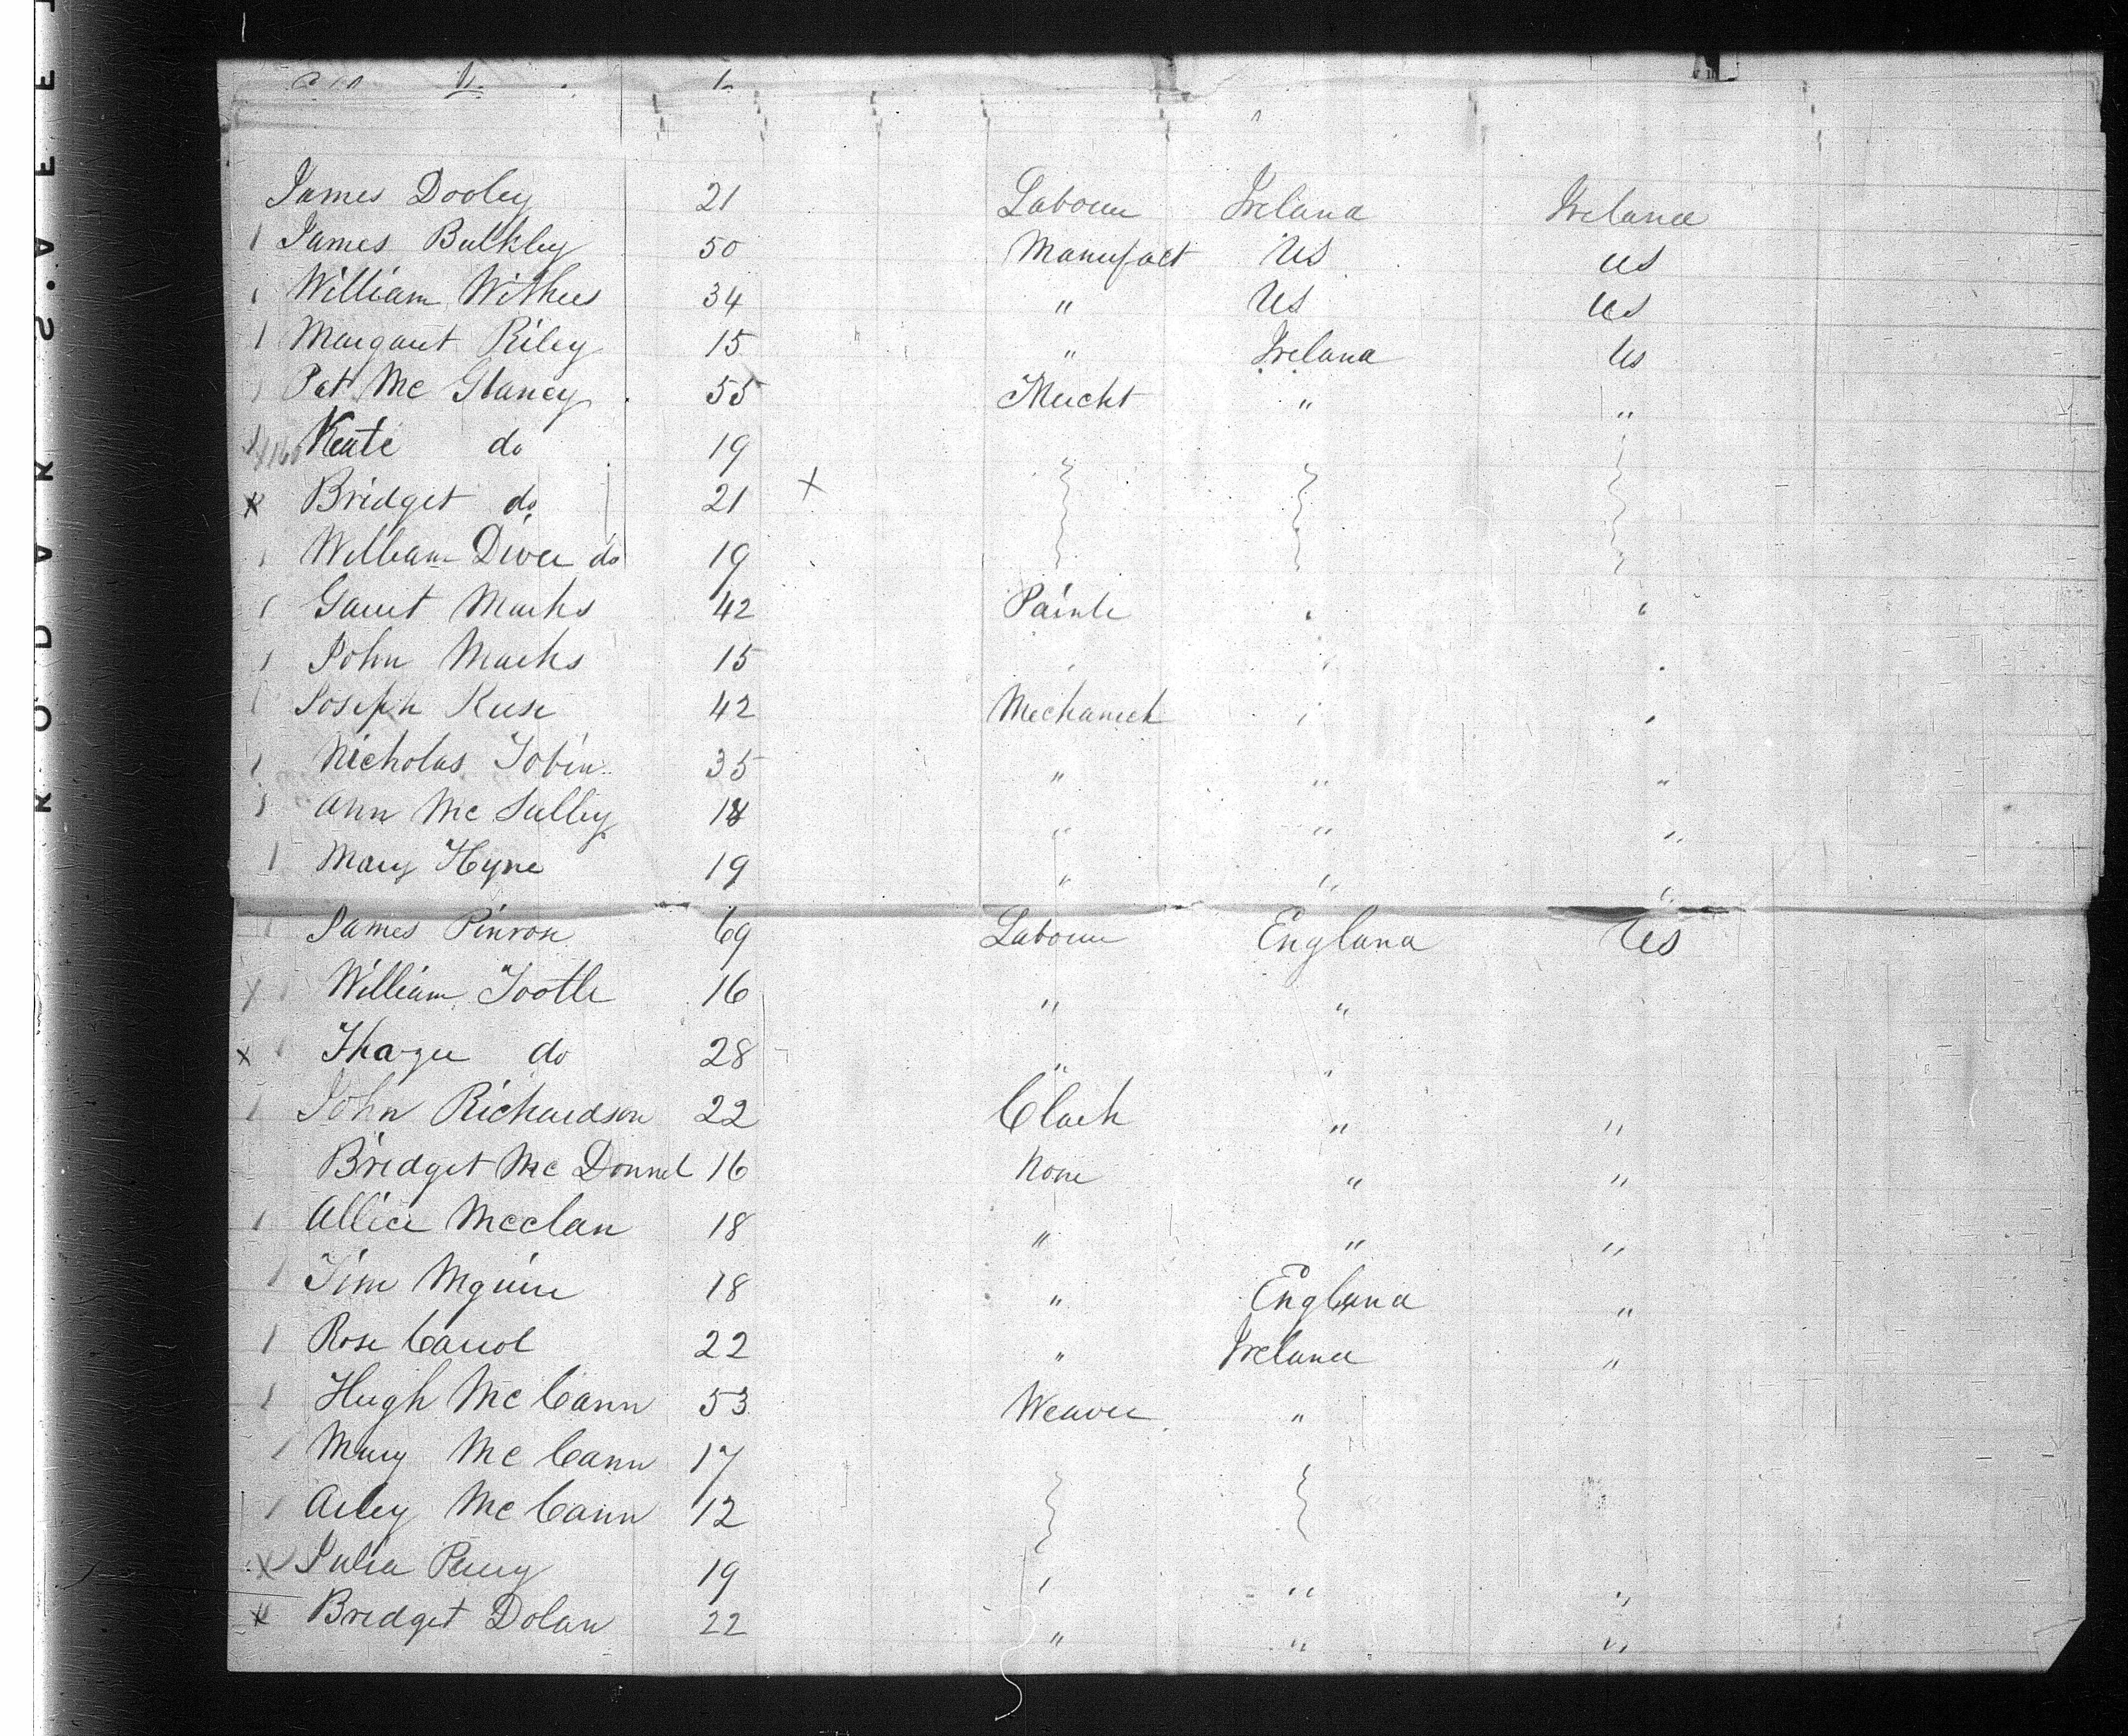 James Dooley 21 Labour Ireland Ireland
1 James Bulkley 50 Manufact US US
1 William Withers 34 " US US
1 Margaret Riley 15 " Ireland Us
1 Pat Mc Glancy 55 Mercht " "
Kate do 19
x Bridget do 21 x
1 William Diver do 19
1 Garret Marks 42 Painte " "
1 John Marks 15 " " "
1 Joseph Reese 42 Mechanick " "
1 Nicholas Tobin 35 " " "
1 Ann Mc Sulley " " "
1 Mary Hyne 19 " " "
1 James Pinrose 69 Labour England US
x 1 William Tootle 16 " "
x 1 do 28 " "
1 John Richardson 22 Clark " "
Bridget Mc Donnel 16 None " "
1 Allice Mcclan 18 " " "
1 Tim Mguire 18 " England "
1 Rose Carrol 22 " Ireland "
1 Hugh Mc Cann 53 Weaver "
1 Mary Mc Cann 17
1 Mc Cann 12
x Julia Perry 19 " " "
x Bridget Dolan 22 " " "